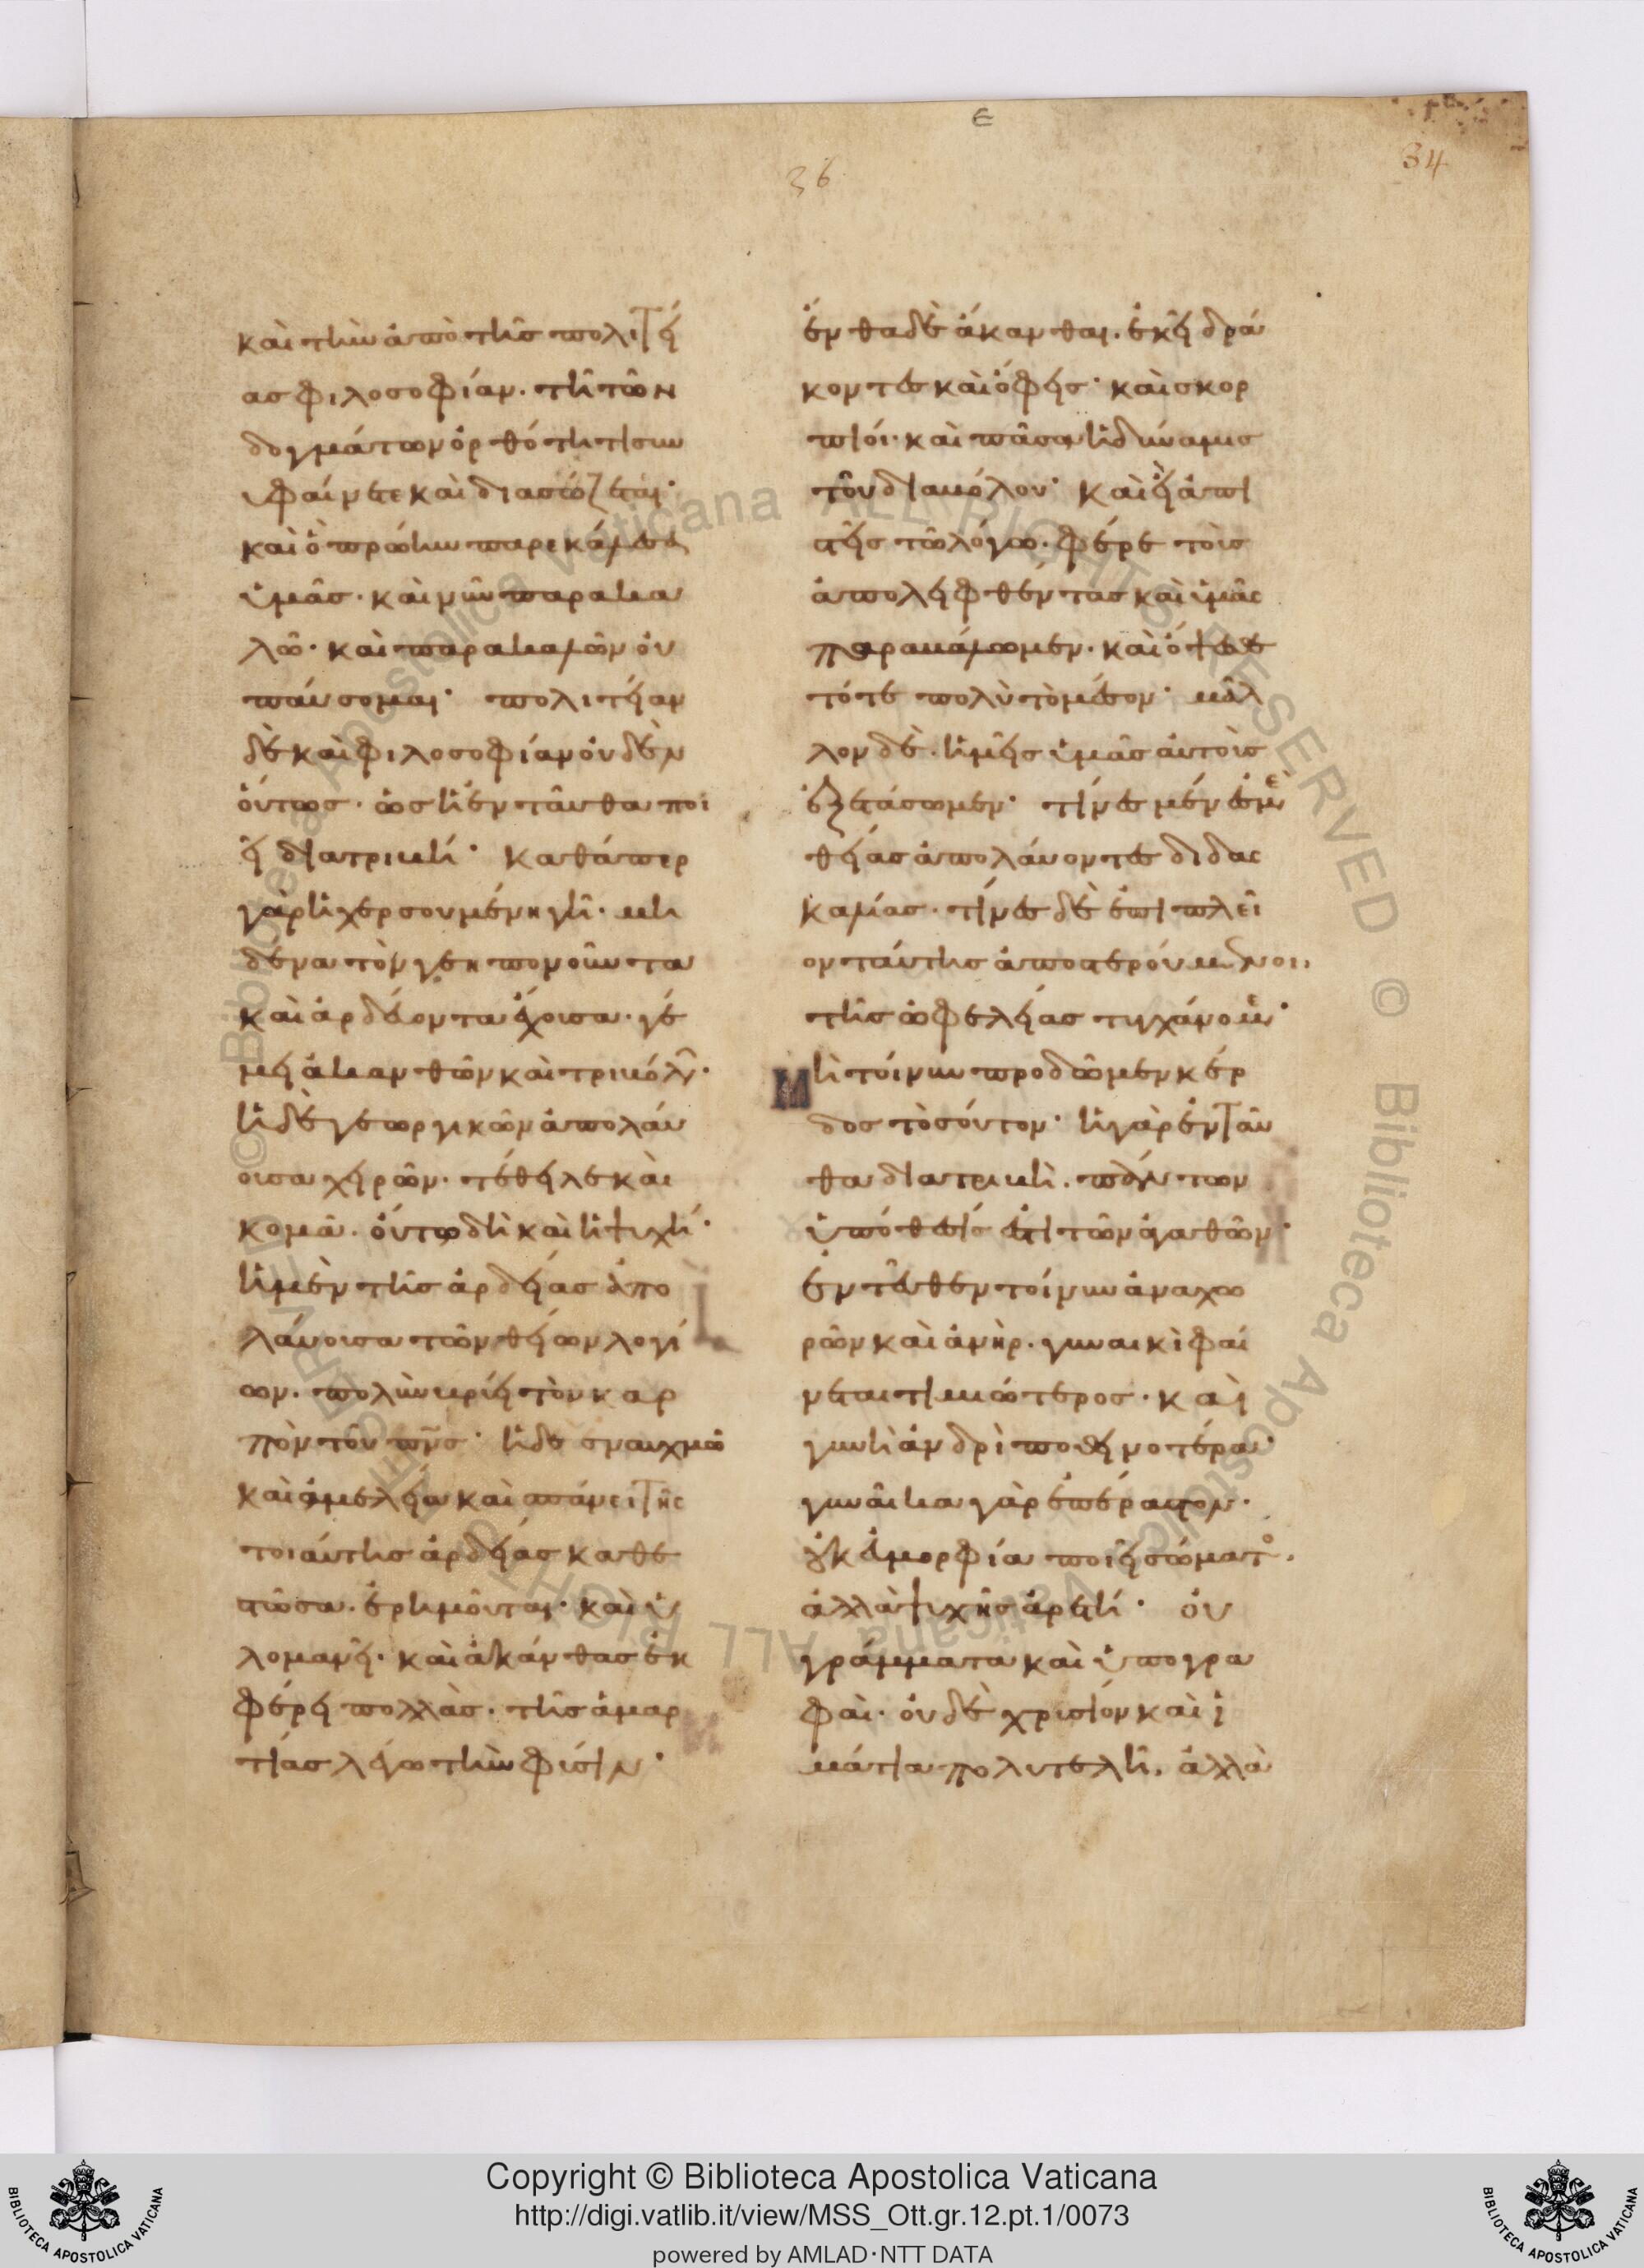 ε
36
34
καὶ τὴν ἀπὸ τῆς πολιτεί
ας φιλοσοφίαν. τῆ τῶν
δογμάτων ὀρθότητι συν
υφαίνετε καὶ διασώζεται·
καὶ ὃ πρώην παρεκάλεσα
ὑμᾶς· καὶ νῦν παρακα
λῶ· καὶ παρακαλῶν οὐ
παύσομαι· πολιτείαν
δὲ καὶ φιλοσοφίαν οὐδὲν
ὄντως· ὡς ἡ ἐνταῦθα ποι
εῖ διατριβή· Καθάπερ
γὰρ ἡ χερσουμένη γῆ· μη
δενα τὸν γεηπονοῦντα
καὶ ἀρδέοντα ἔχουσα· γέ
μει ἀκανθῶν καὶ τριβόλων·
ἡ δὲ γεωργικῶν ἀπολαύ
ουσα χειρῶν· τέθηλε καὶ
κομᾶ. οὕτω δὴ καὶ ἡ ψυχή·
ἡ μὲν τῆς ἀρδείας ἀπο
λαύουσα τῶν θείων λογί
ων. πολὺν βρίει τὸν καρ
πὸν τοῦ πνς· ἡ δὲ ἐν αυχμῶ
καὶ ἀμελεία καὶ σπάνει τῆς
τοιαύτης ἀρδείας καθε
στῶσα. ἐρημοῦται· καὶ ὑ
λομανεῖ· καὶ ἀκάνθας ἐκ
φέρει πολλὰς· τῆς ἁμαρ
τίας λέγω τὴν φύσιν·
ἔνθα δὲ ἄκανθαι. ἐκεῖ δρά
κοντες καὶ ὄφεις· καὶ σκορ
πίοι· καὶ πᾶσα ἡ δύναμις
τοῦ διαβόλου· Καὶ εἰ ἀπι
στεῖς τῶ λόγω. φέρε τοὺς
ἀπολειφθέντας καὶ ὑμᾶς
παραβάλωμεν· καὶ ὄψεσθε
τότε πολὺ τὸ μέσον· μᾶλ
λον δὲ. ἡμεῖς ὑμᾶς αὐτοὺς
ἐξετάσωμεν· τίνες μέν ἐσμὲν
θείας ἀπολαύοντες διδας
καλίας· τίνες δὲ ἐπὶ πλεῖ
ον ταύτης ἀποστερούμενοι,
τῆς ὠφελείας τυγχάνομεν·
Μὴ τοίνυν προδῶμεν κέρ
δος τοσοῦτον· ἡ γὰρ ἐνταῦ
θα διατριβὴ. πάντων
ὑπόθεσίς ἐστι τῶν ἀγαθῶν·
ἐντεῦθεν τοίνυν ἀναχω
ρῶν καὶ ἀνὴρ. γυναικὶ φαί
νεται τιμιώτερος· καὶ
γυνὴ ἀνδρὶ ποθεινοτέρα·
γυναῖκα γὰρ ἐπέραστον·
οὐκ εὐμορφία ποιεῖ σώματος.
ἀλλὰ ψυχῆς ἀρετή· οὐ
γράμματα καὶ ὑπογρα
φαὶ· οὐδὲ χρυσίον καὶ ἱ
μάτια πολυτελῆ, ἀλλὰ
Copyright © Biblioteca Apostolica Vaticana
http://digi.vatlib.it/view/MSS_Ott.gr.12.pt.1/0073
powered by AMLAD·NTT DATA
BIBLIOTECA APOSTOLICA VATICANA
BIBLIOTECA APOSTOLICA VATICANA